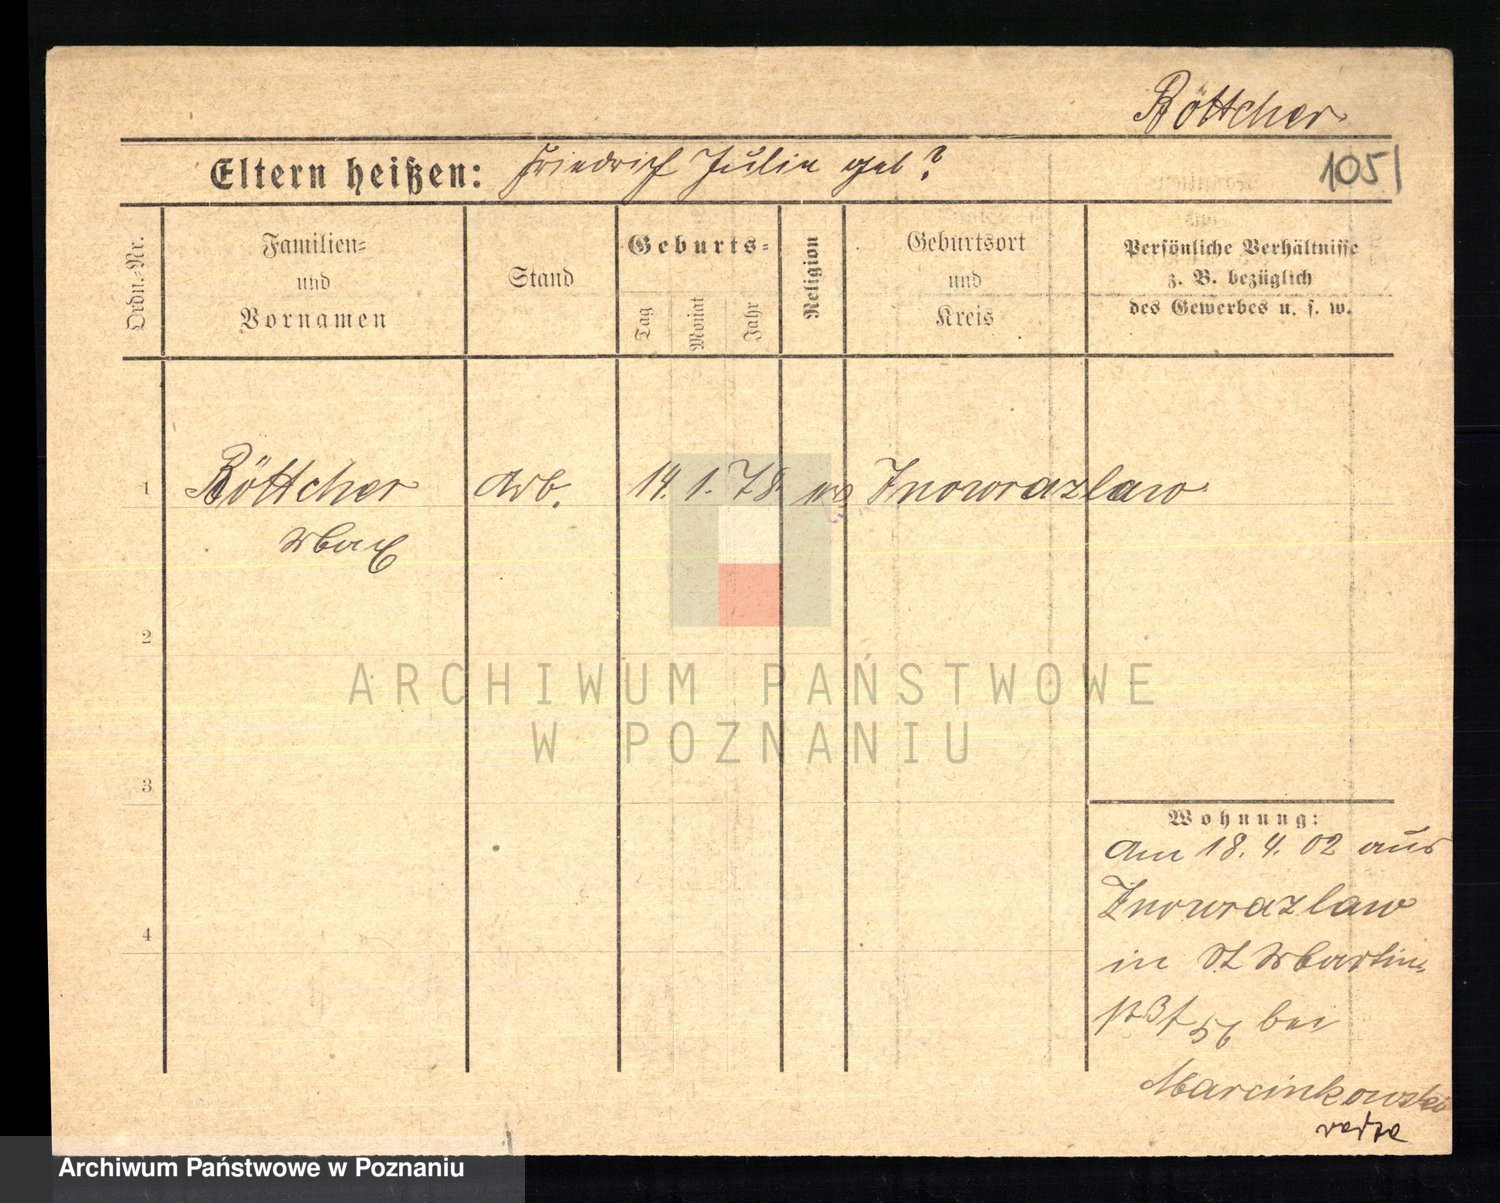 Böttcher
Eltern heißen: Friedrich Julie geb?
1051
Ordn.-Nr.
Familien-
und
Vornamen
Stand
Geburts-
Tag
Monat
Jahr
Religion
Geburtsort
und
Kreis
Persönliche Verhältnisse
z. B. bezüglich
des Gewerbes u. s. w.
1 Böttcher Arb. 14. 1. 78. Inowrazlaw
Max
2
3
4
Wohnung:
Am 18. 4. 02 aus
Inowrazlaw
in St Martin-
56 bei
Marcinkowski
ARCHIWUM PAŃSTWOWE
W POZNANIU
Archiwum Państwowe w Poznaniu